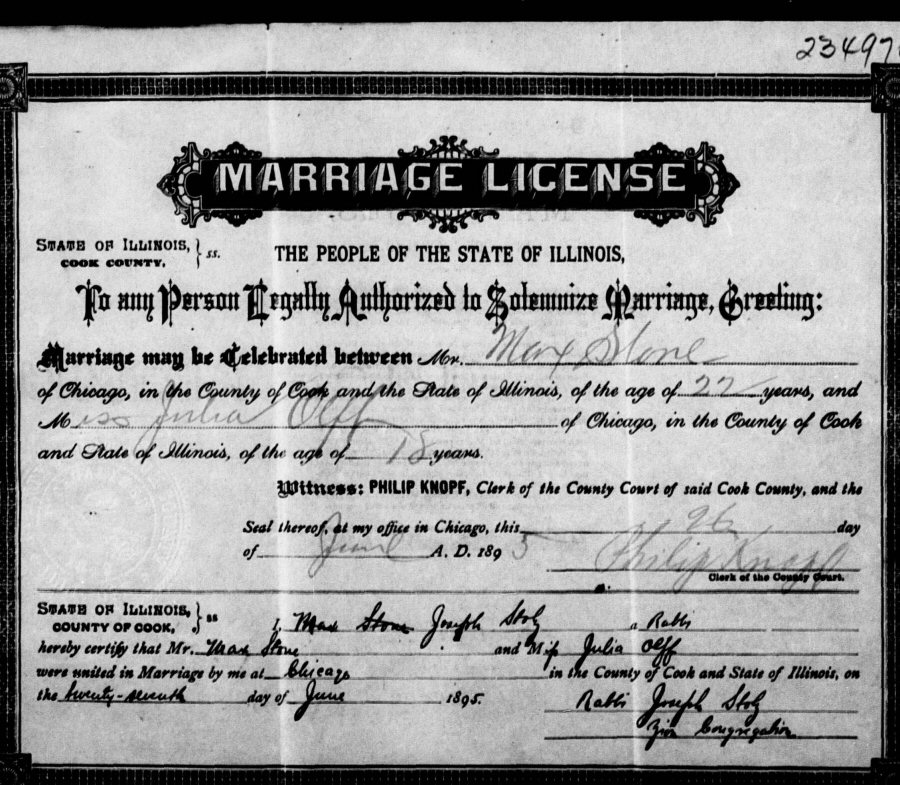 23497
MARRIAGE LICENSE
STATE OF ILLINOIS, } ss.
COOK COUNTY.
THE PEOPLE OF THE STATE OF ILLINOIS,
To any Person Legally Authorized to Solemnize Marriage, Greeting:
Marriage may be Celebrated between Mr. Max Stone
of Chicago, in the County of Cook and the State of Illinois, of the age of 22 years, and
Miss Julia Olff of Chicago, in the County of Cook
and State of Illinois, of the age of 18 years.
Witness: PHILIP KNOPF, Clerk of the County Court of said Cook County, and the
Seal thereof, at my office in Chicago, this 26 day
of June A. D. 1895 Philip Knopf
Clerk of the County Court.
STATE OF ILLINOIS, } ss
COUNTY OF COOK,
I, Max Stone Joseph Stolz a Rabbi
hereby certify that Mr. Max Stone and Miss Julia Olff
were united in Marriage by me at Chicago in the County of Cook and State of Illinois, on
the twenty-seventh day of June 1895.
Rabbi Joseph Stolz
Zion Congregation